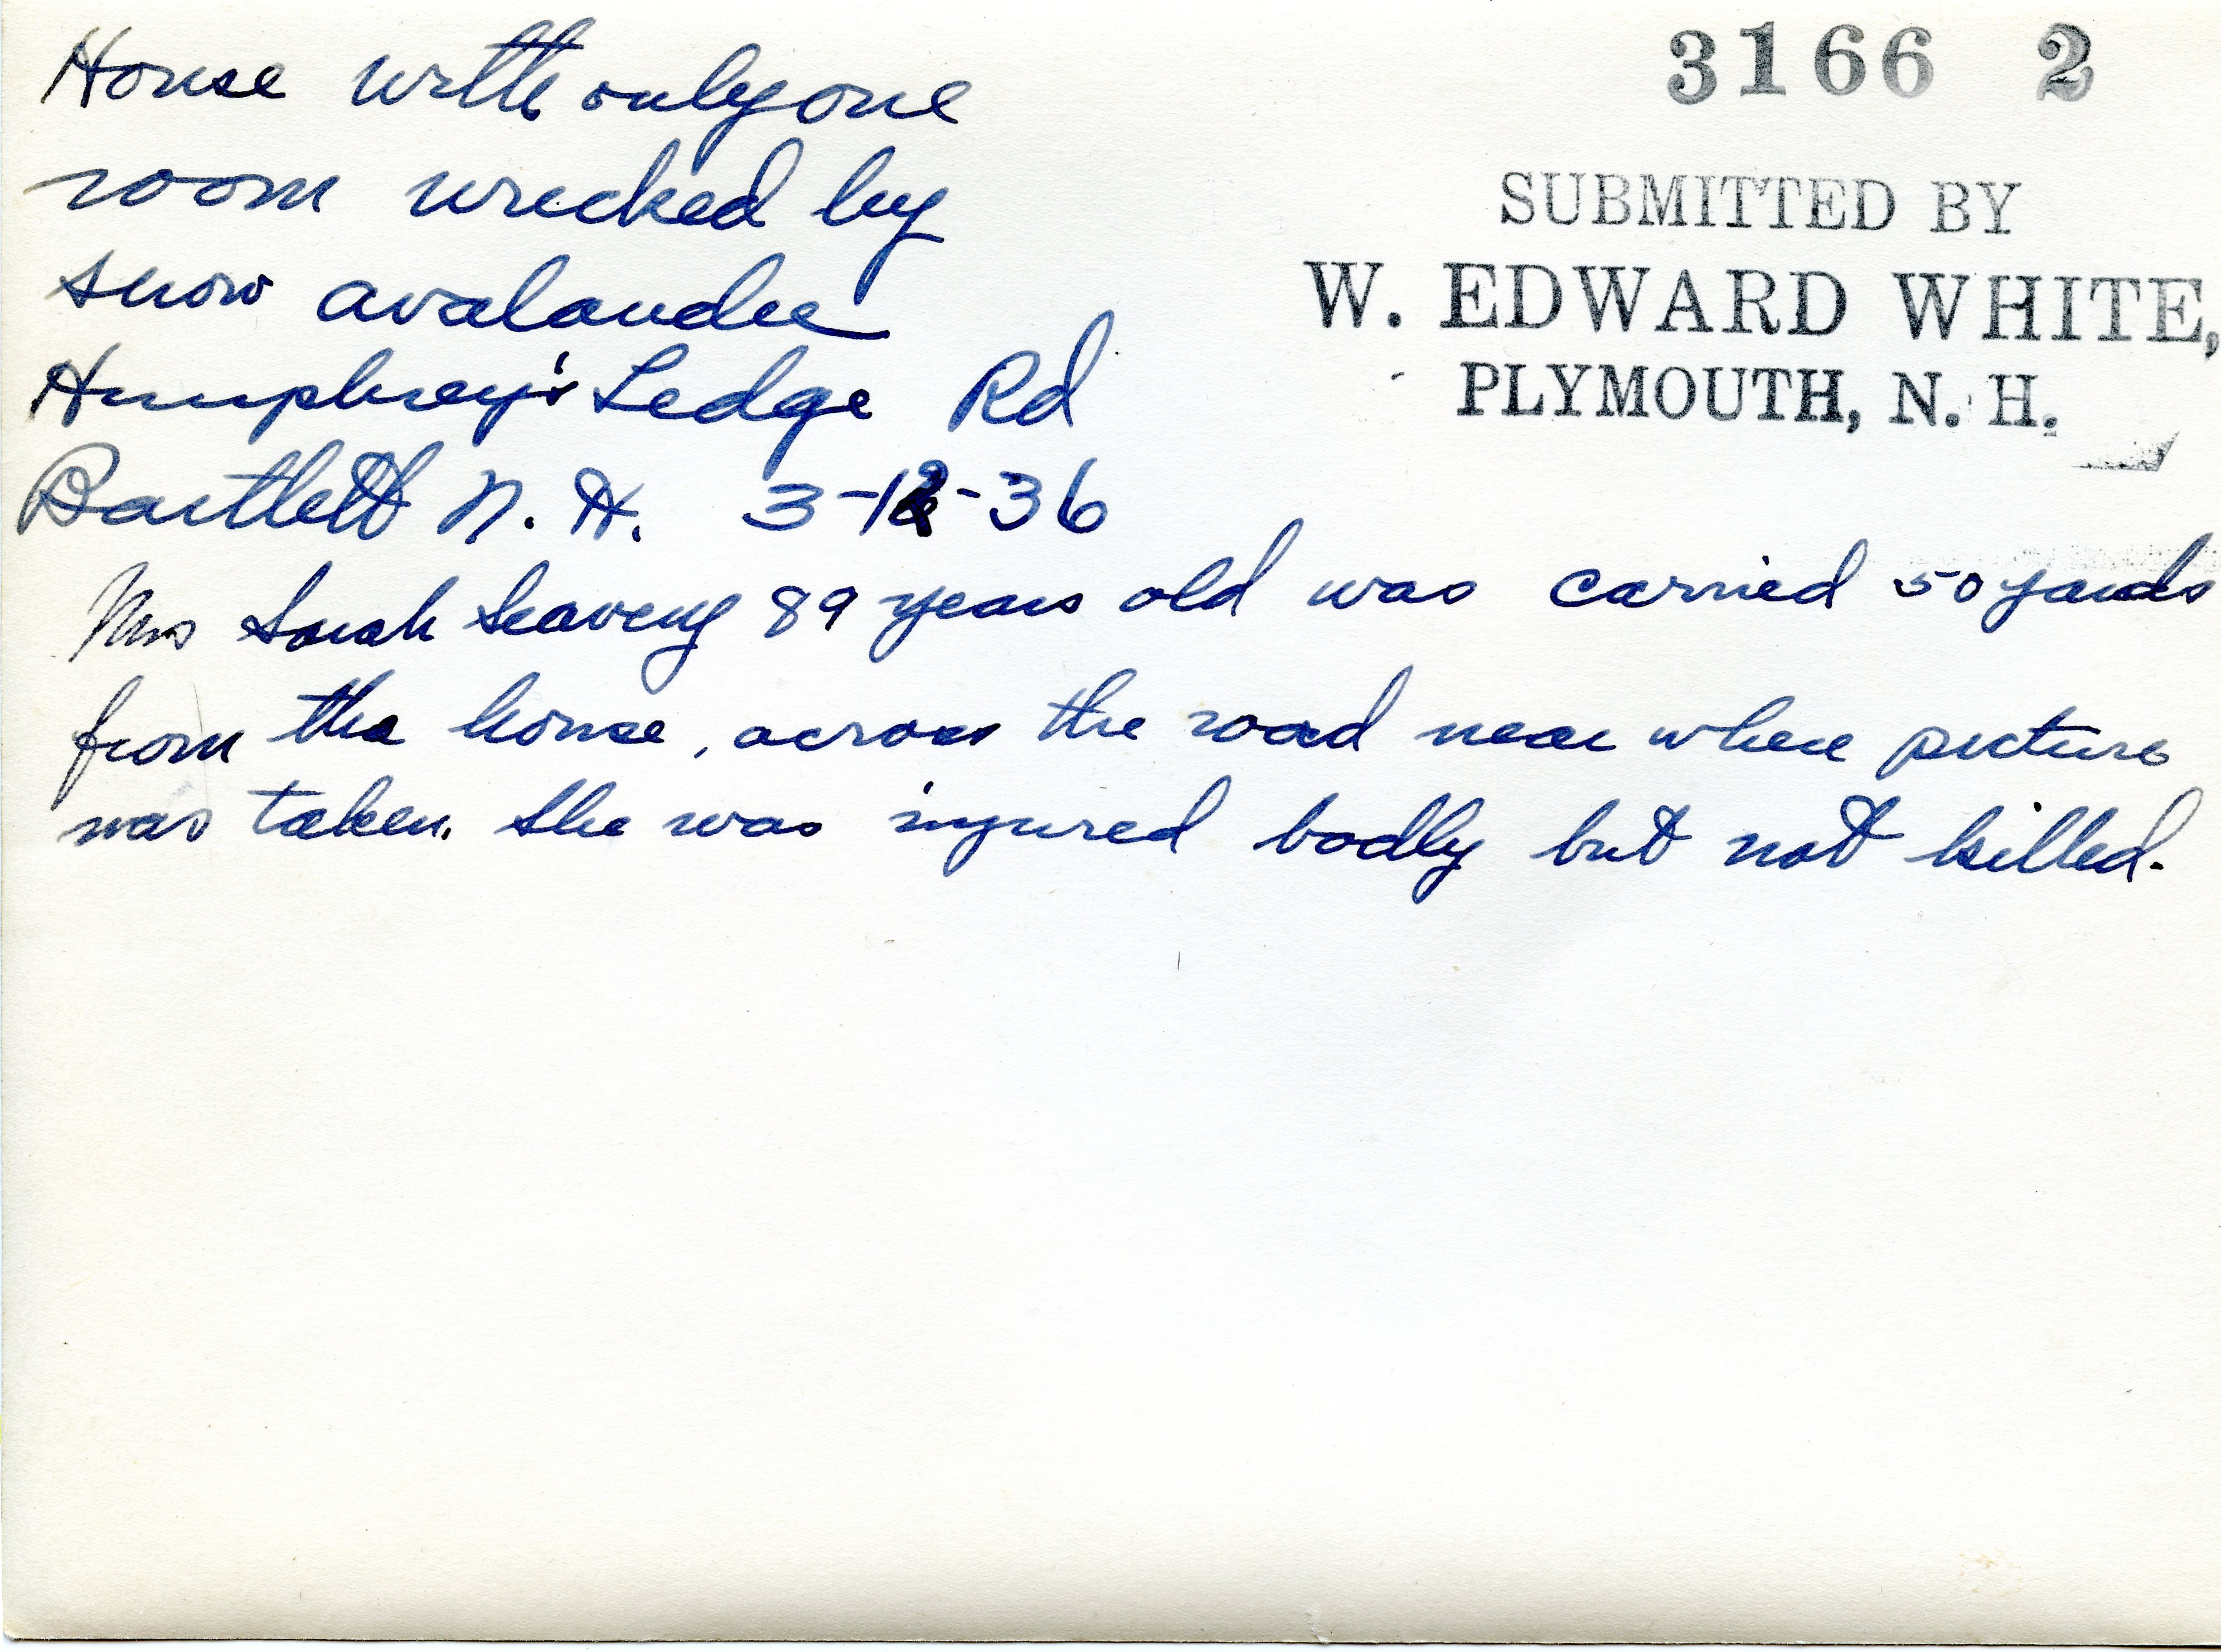 House with only one
room wrecked by
snow avalanche
Humphrey's Ledge Rd
Bartlett N. H. 3-12-36
Mrs Sarah Seavey 89 years old was carried 50 yards
from the house, across the road near where picture
was taken. She was injured badly but not killed.
3166 2
SUBMITTED BY
W. EDWARD WHITE,
PLYMOUTH, N. H.